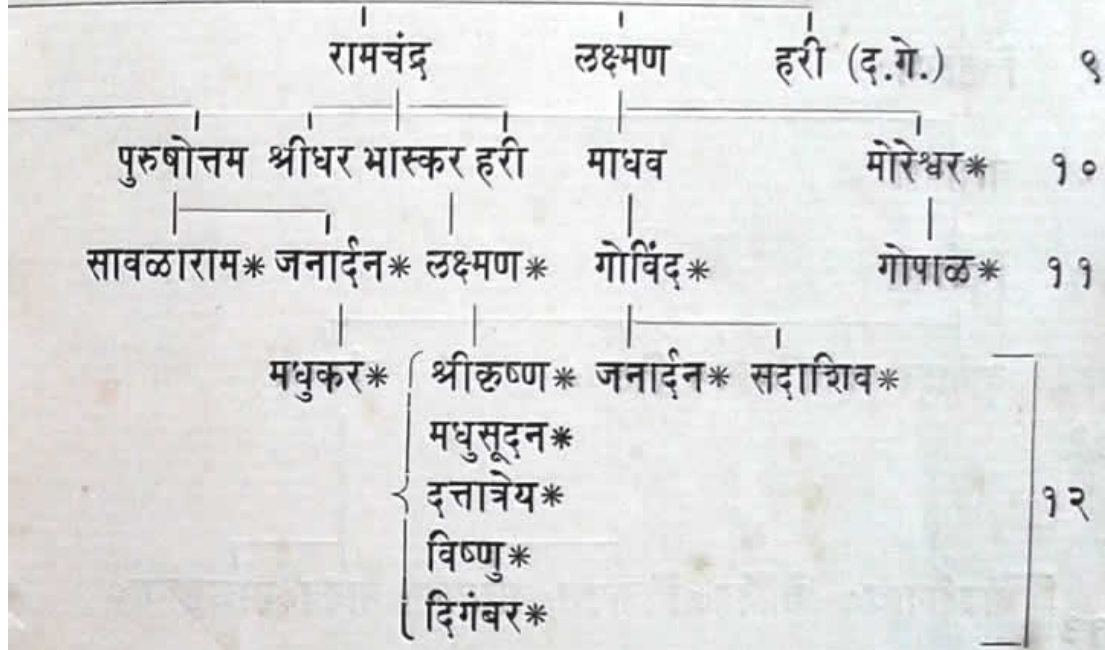 रामचंद्र लक्ष्मण हरी (द.गे.) ९
पुरुषोत्तम श्रीधर भास्कर हरी माधव मोरेश्वर* १०
सावळाराम* जनार्दन* लक्ष्मण* गोविंद* गोपाळ* ११
मधुकर* श्रीकृष्ण* जनार्दन* सदाशिव*
मधुसूदन*
दत्तात्रेय* १२
विष्णु*
दिगंबर*